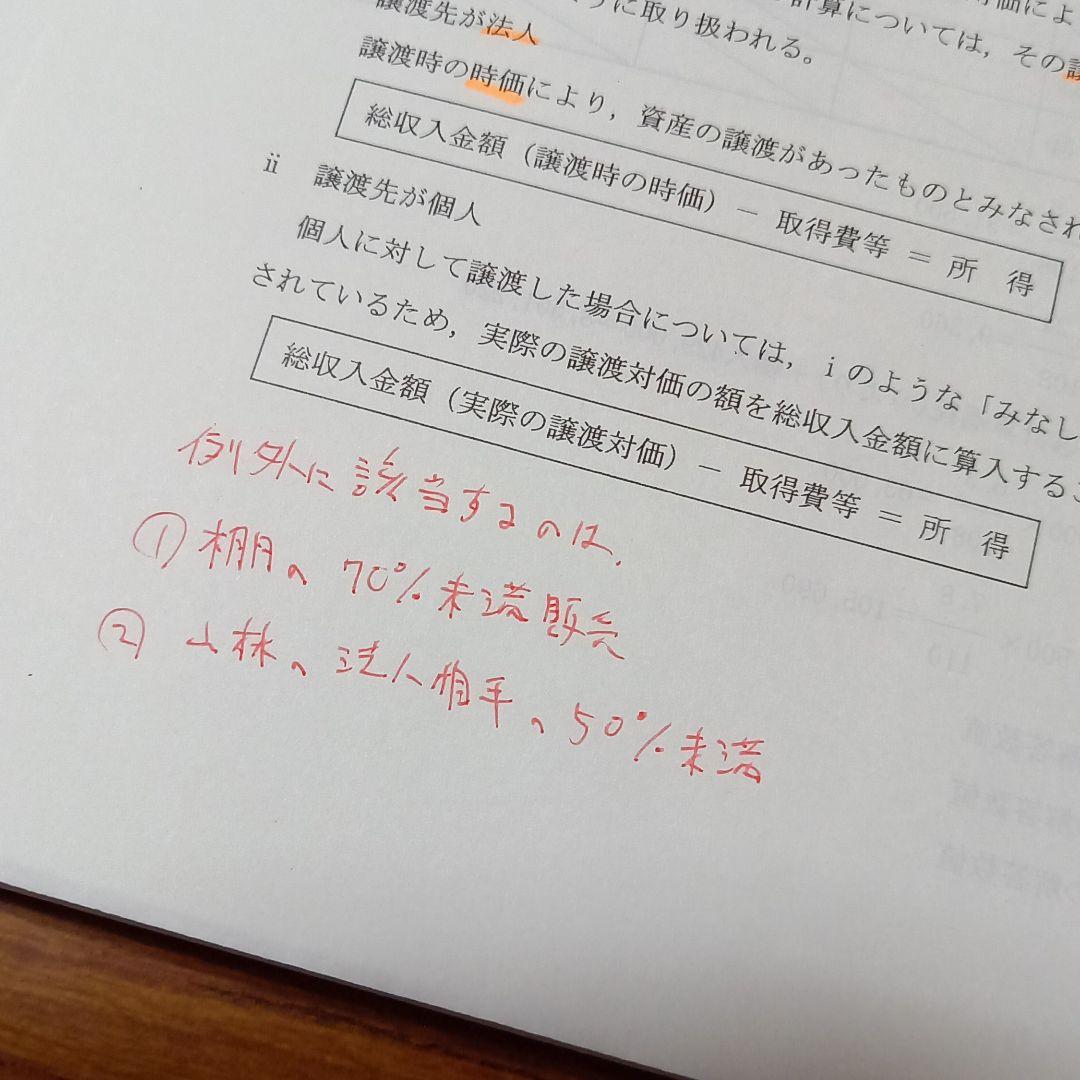 価によ
計算については，その譲
うに取り扱われる。
譲渡先が法人
譲渡時の時価により，資産の譲渡があったものとみなされ
総収入金額（譲渡時の時価）－ 取得費等 ＝ 所 得
ⅱ 譲渡先が個人
個人に対して譲渡した場合については，ⅰのような「みなし
されているため，実際の譲渡対価の額を総収入金額に算入するこ
総収入金額（実際の譲渡対価）－ 取得費等 ＝ 所 得
例外に該当するのは、
① 棚、70％未満販売
② 山林、法人相手、50％未満